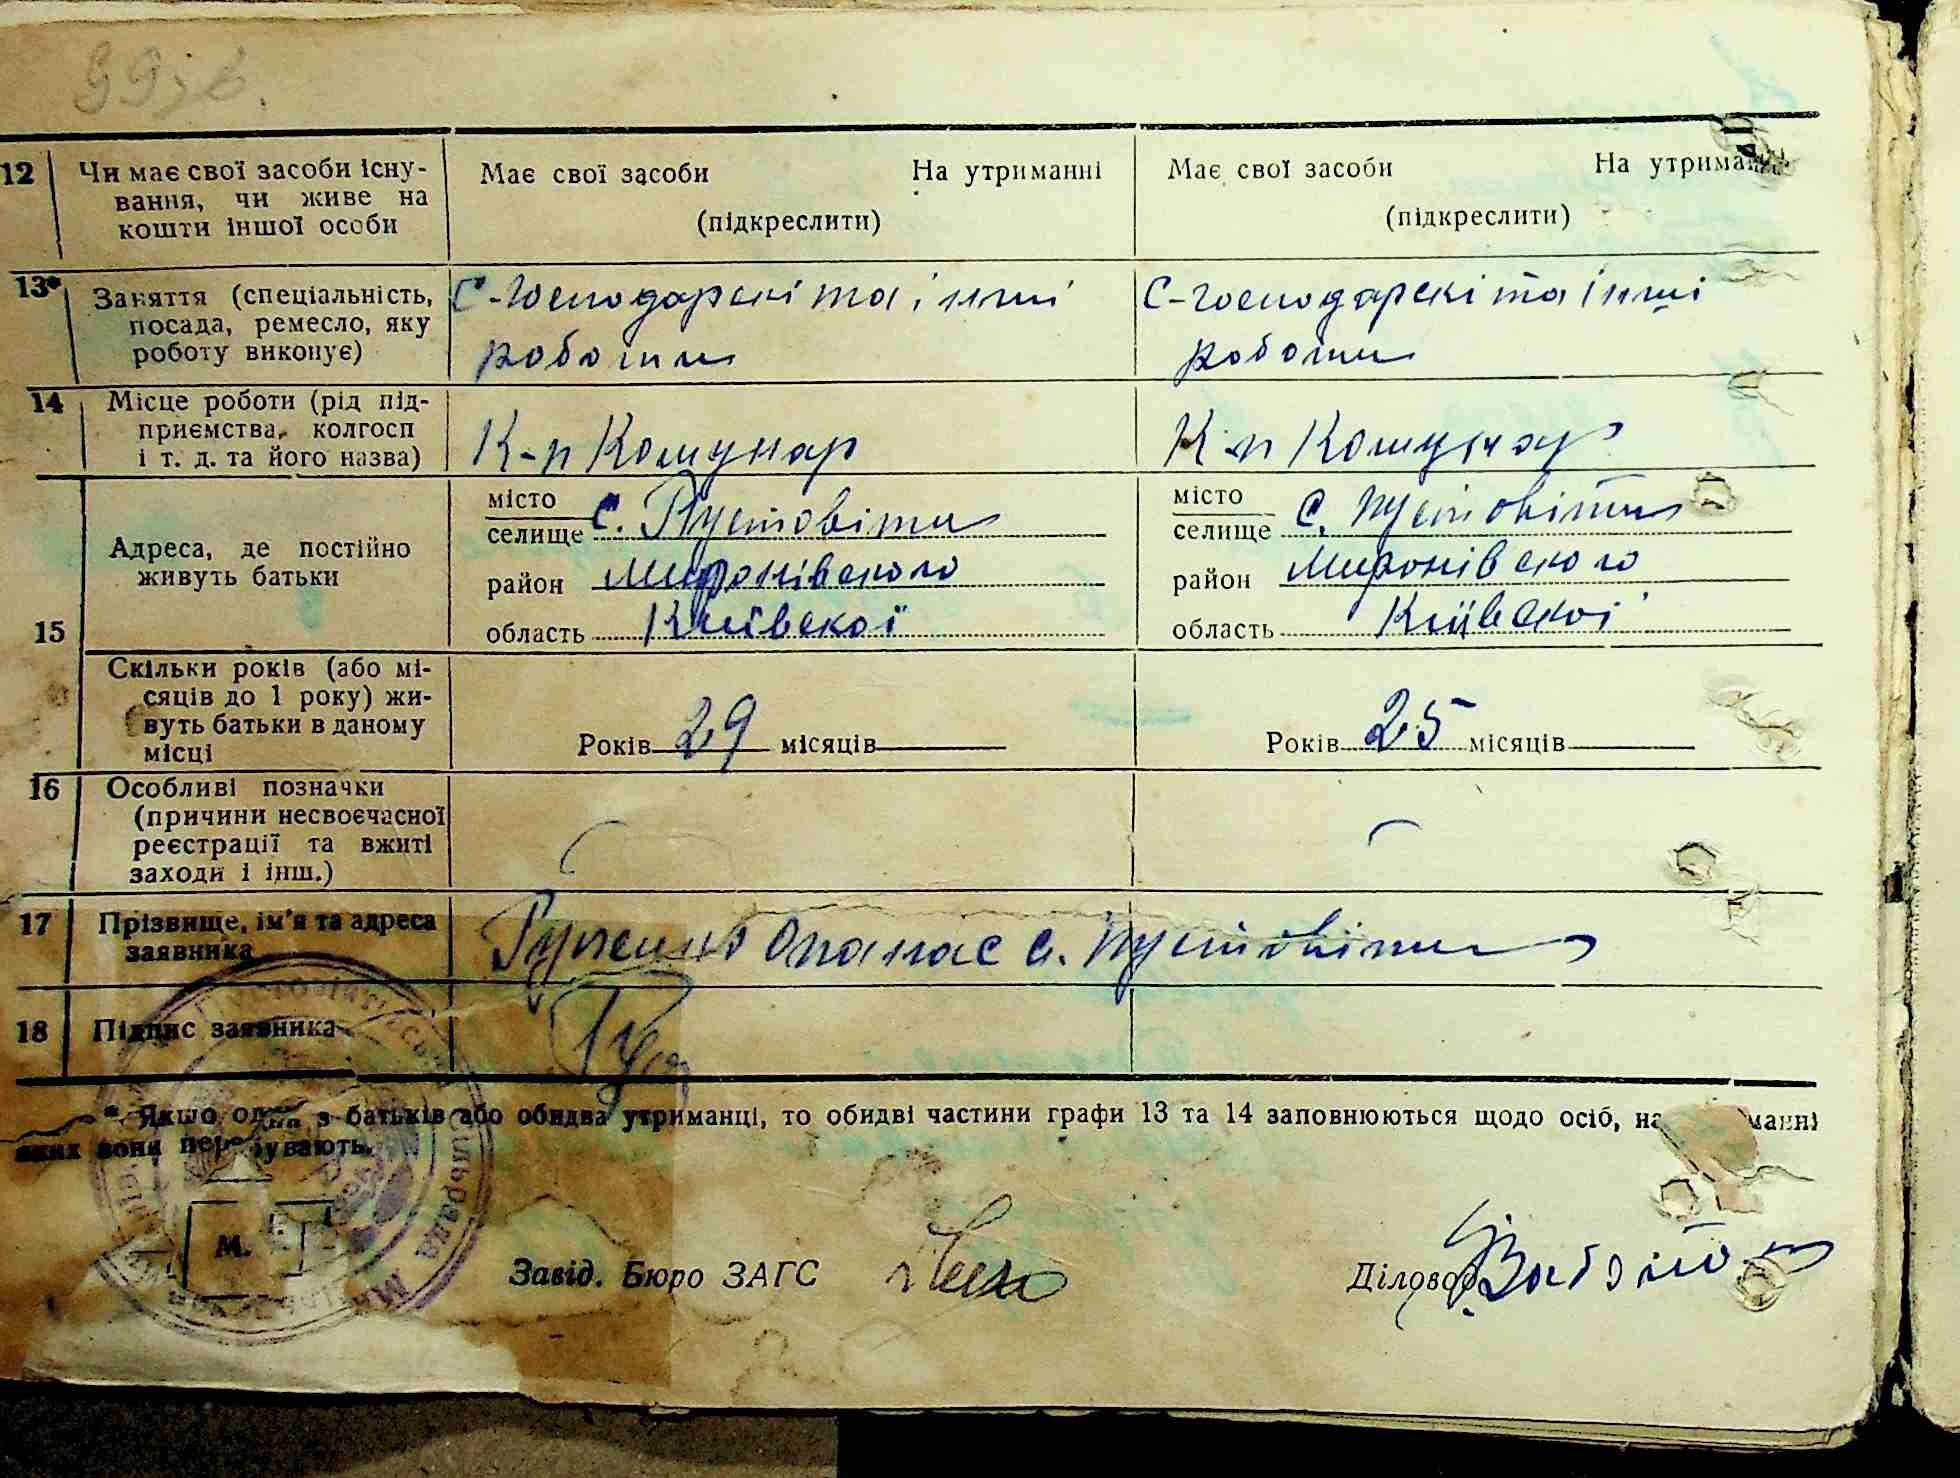 12 Чи має свої засоби існу-
вання, чи живе на
кошти іншої особи
Має свої засоби На утриманні
(підкреслити)
Має свої засоби На утриманні
(підкреслити)
13* Заняття (спеціальність,
посада, ремесло, яку
роботу виконує)
С-господарскі та інші
роботи
С-господарскі та інші
роботи
14 Місце роботи (рід під-
приємства, колгосп
і т. д. та його назва)
К-п Комунар
К-п Комунар
15 Адреса, де постійно
живуть батьки
місто
селище с. Пустовіти
район Миронівского
область Київскої
місто
селище с. Пустовіти
район Миронівского
область Київскої
Скільки років (або мі-
сяців до 1 року) жи-
вуть батьки в даному
місці
Років 29 місяців
Років 25 місяців
16 Особливі позначки
(причини несвоєчасної
реєстрації та вжиті
заходи і інш.)
17 Прізвище, ім'я та адреса
заявника
Опанас с. Пустовіти
18 Підпис заявника
* Якщо один з батьків або обидва утриманці, то обидві частини графи 13 та 14 заповнюються щодо осіб, на
яких вони перебувають.
М.
Завід. Бюро ЗАГС
Діловод